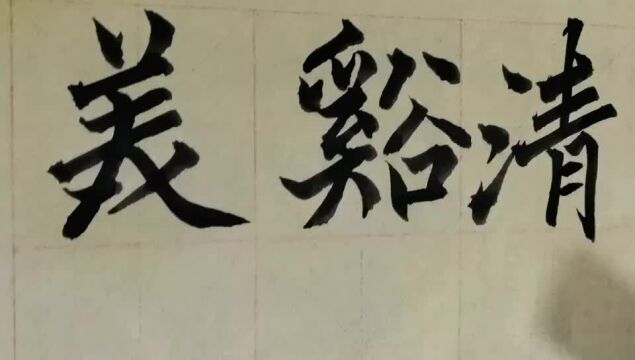 清谿美